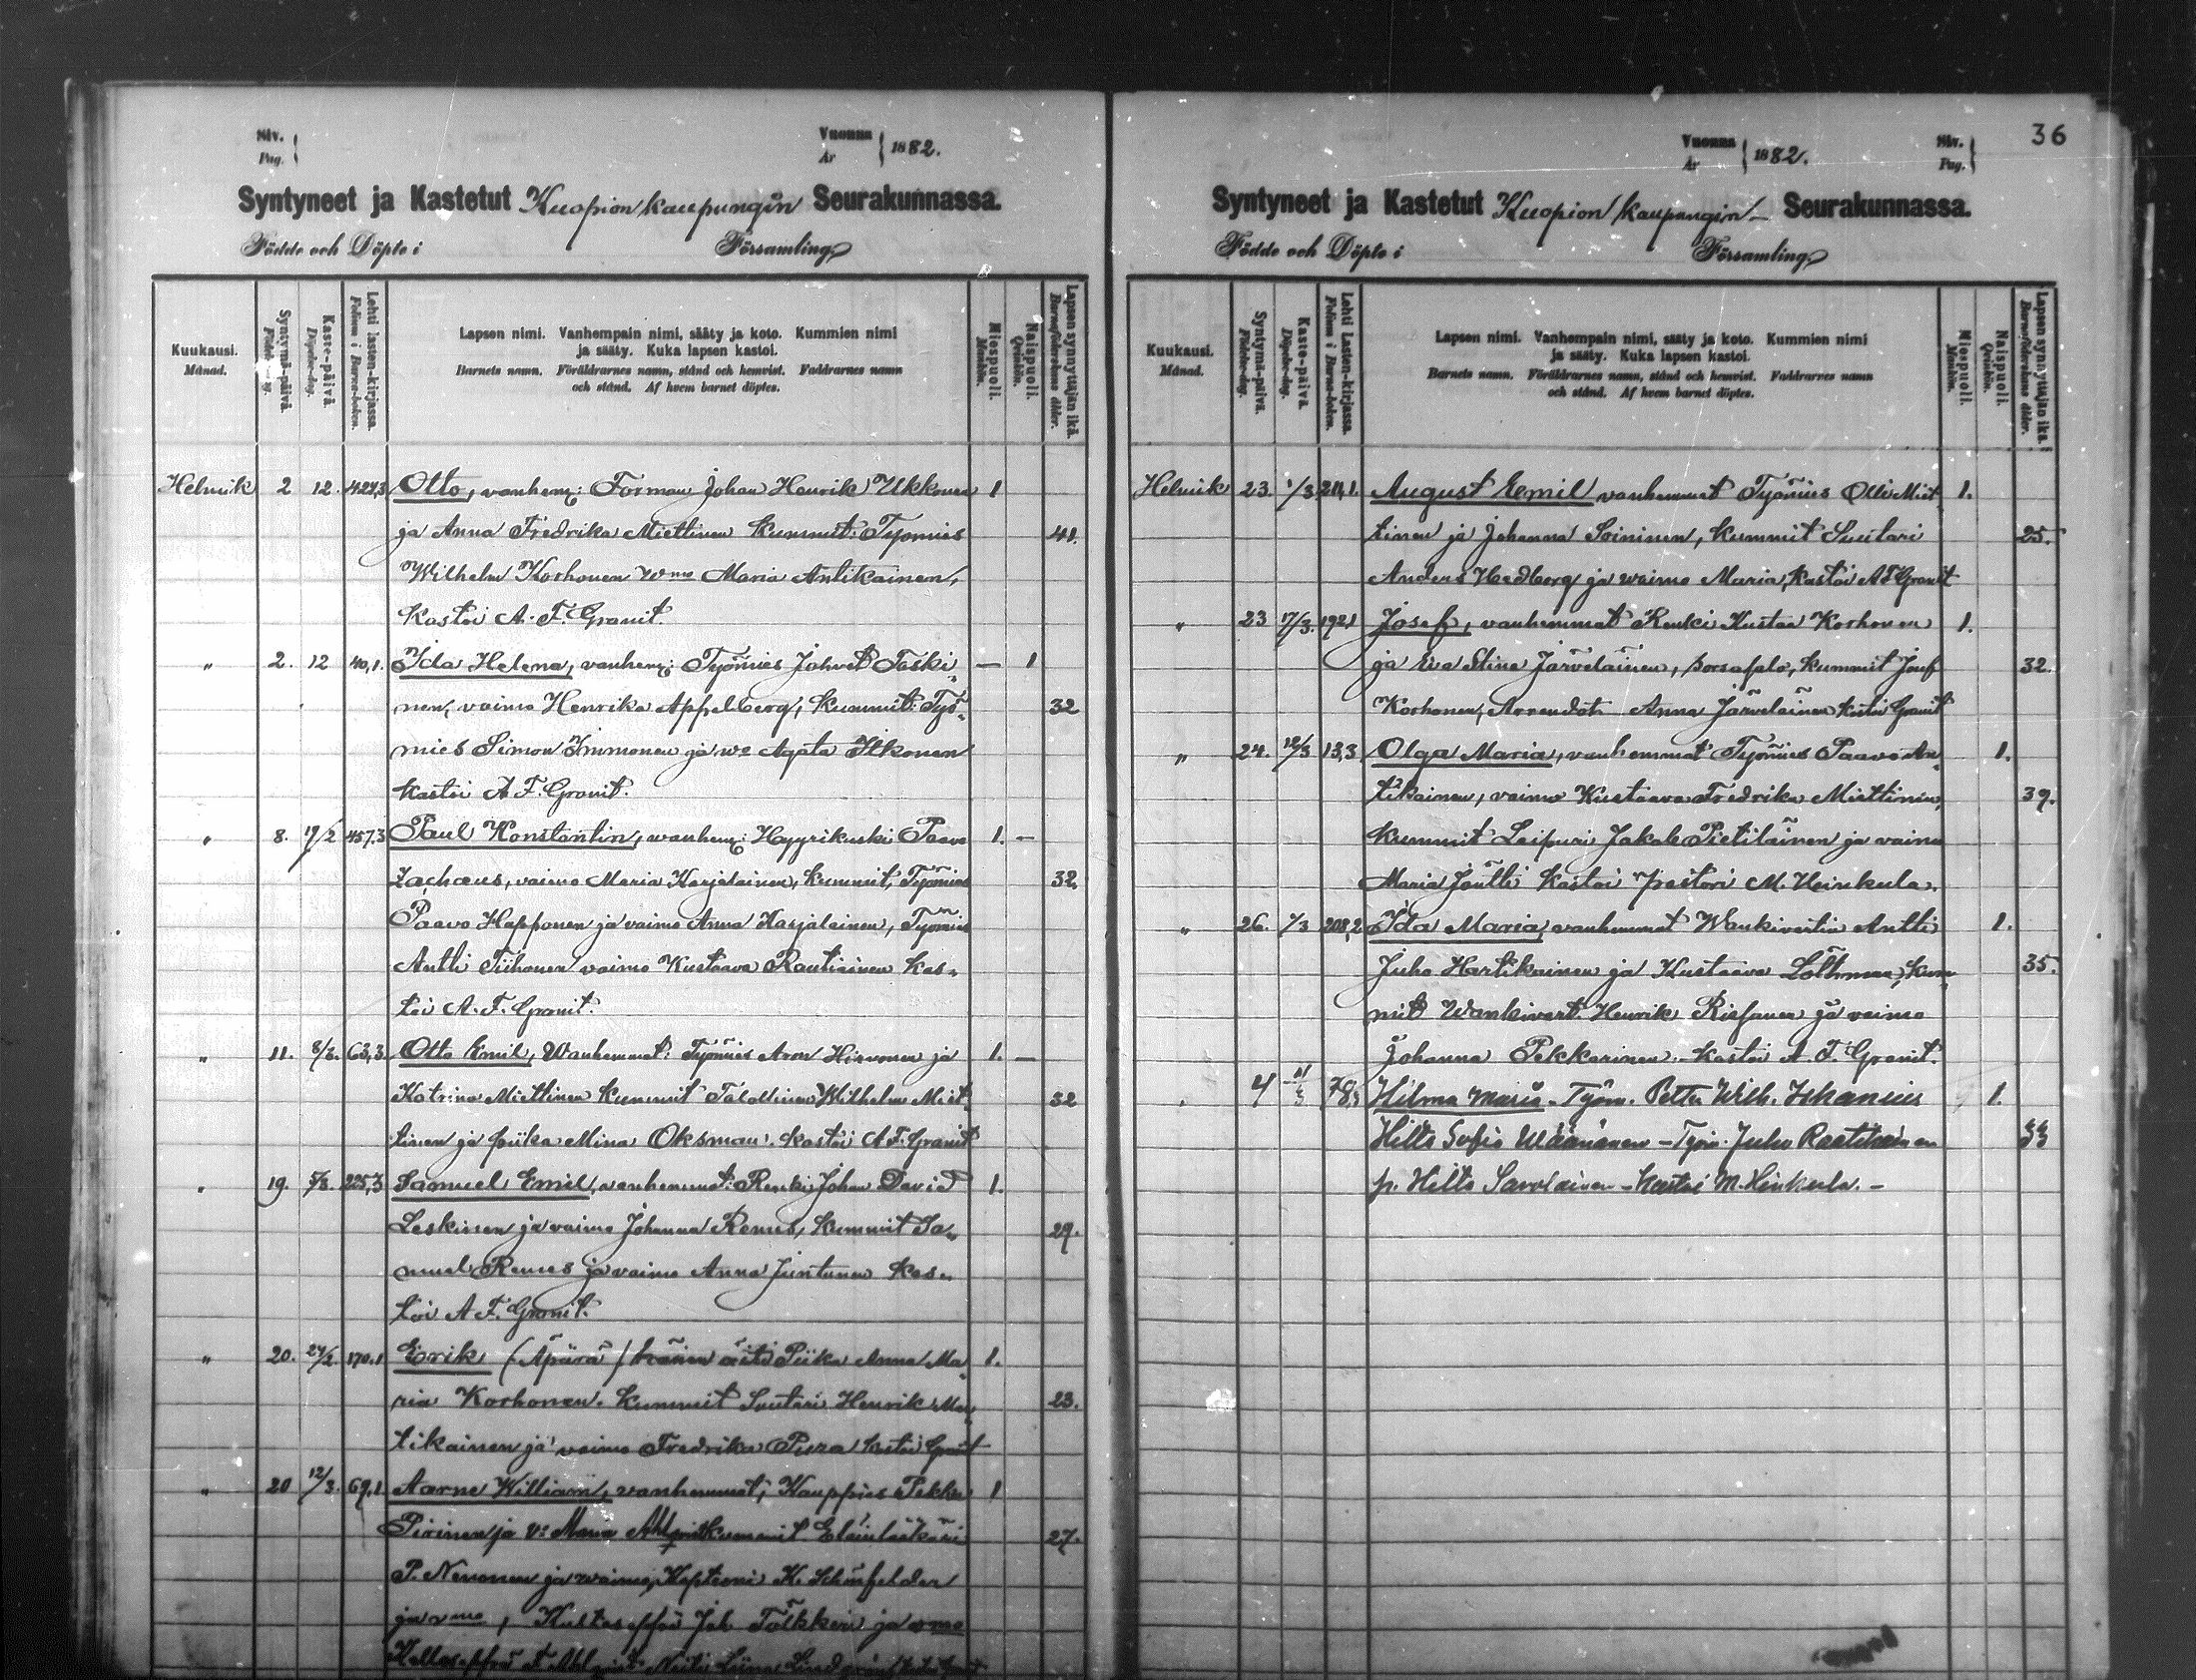 36
Siv.
Pag.
Vuonna
År
1882.
Syntyneet ja Kastetut Kuopion kaupungin Seurakunnassa.
Födde och Döpte i Församling
Kuukausi.
Månad.
Syntymä-päivä.
Födelse-dag.
Kaste-päivä.
Döpelse-dag.
Lehti lasten-kirjassa.
Folium i Barna-boken.
Lapsen nimi. Vanhempain nimi, sääty ja koto. Kummien nimi
ja sääty. Kuka lapsen kastoi.
Barnets namn. Föräldrarnes namn, stånd och hemvist. Faddrarnes namn
och stånd. Af hvem barnet döptes.
Miespuoli.
Mankön.
Naispuoli.
Qvinkön.
Lapsen synnyttäjän ikä.
Barnaföderskans ålder.
Helmik 2 12. 427,3 Otto, vanhem: Forman Johan Henrik Ukkonen 1
ja Anna Fredrika Miettinen Kummit: Työmies 41.
Wilhelm Korhonen Wmo Maria Antikainen,
Kastoi A. F. Granit.
" 2. 12 40,1. Ida Helena, vanhem: Työmies Taski- — 1
nen, vaimo Henrika Appelberg, Kummit: Työ- 32
mies Simon Immonen ja wo Agata Itkonen
Kastoi A F. Granit.
" 8. 17/2 457,3 Paul Konstantin, wanhem: Hyyrikuski Paavo 1. —
Zachæus, vaimo Maria Karjalainen, Kummit, Työmies 32.
Paavo Happonen ja vaimo Anna Karjalainen, Työmies
Antti Tiihonen vaimo Kustaava Rautiainen Kas-
toi A. F. Granit.
" 11. 63,3. Otto Emil, Wanhemmat: Työmies Aron Hirvonen ja 1. —
Katrina Miettinen Kummit Talollinen Wilhelm Miet- 32
tinen ja piika Mina Oksman. Kastoi A F. Granit
" 19. 5/3. 225,3 Samuel Emil, vanhemmat: Renki Johan David 1.
Leskinen ja vaimo Johanna Remes, Kummit Sa- 29.
muel Remes ja vaimo Anna Juntunen Kas-
toi A F. Granit.
" 20. 27/2. 170,1 Erik (Äpärä) hänen äiti Piika Anna Ma- 1.
ria Korhonen. Kummit Suutari Henrik 23.
tikainen ja vaimo Fredrika Kastoi Granit
" 20 12/3. 69,1 Aarne William, vanhemmat; Kauppies Pekka 1
Pirinen ja v: Maria Ahlqvist kummit Eläinlääkäri 27.
P. Nenonen ja vaimo, Kapteeni K. Schönfelder
ja vmo, Joh Tölkkeri ja vmo
Siv.
Pag.
Vuonna
År
1882.
Syntyneet ja Kastetut Kuopion kaupungin Seurakunnassa.
Födde och Döpte i Församling
Kuukausi.
Månad.
Syntymä-päivä.
Födelse-dag.
Kaste-päivä.
Döpelse-dag.
Lehti Lasten-kirjassa.
Folium i Barna-boken.
Lapsen nimi. Vanhempain nimi, sääty ja koto. Kummien nimi
ja sääty. Kuka lapsen kastoi.
Barnets namn. Föräldrarnes namn, stånd och hemvist. Faddrarnes namn
och stånd. Af hvem barnet döptes.
Miespuoli.
Mankön.
Naispuoli.
Qvinkön.
Lapsen synnyttäjän ikä.
Barnaföderskans ålder.
Helmik 23. 211,1. August Emil vanhemmat Työmies Olli Miet- 1.
tinen ja Johanna Soininen, Kummit Suutari 25.
Anders Hedberg ja waimo Maria, Kastoi A F Granit
" 23 17/3. 192,1 Josef, vanhemmat Renki Kustaa Korhonen 1.
ja Eva Stina Järveläinen, Kummit Josef 32.
Korhonen, Anna Järveläinen Kastoi Granit
" 24. 12/3 13,3 Olga Maria, vanhemmat Työmies Paavo An- 1.
tikainen, vaimo Kustaava Fredrika Miettinen, 39.
Kummit Leipuri Jakob Pietiläinen ja vaimo
Maria Jäntti Kastoi Pastori M. Heinkula.
" 26. 208,2 Ida Maria, vanhemmat Wankivartia Antti 1.
Juho Hartikainen ja Kustaava Lothman, Kum- 35.
mit Wankivart. Henrik Riepanen ja vaimo
Johanna Pekkarinen. Kastoi A. F. Granit.
" 4 78,3 Hilma Maria - Työm. Petter Wilh. 1.
Hilta Sofia Wäänänen - Työm. Juho Rautiainen
p. Hilta Savolainen - Kastoi M. Heinkula. -